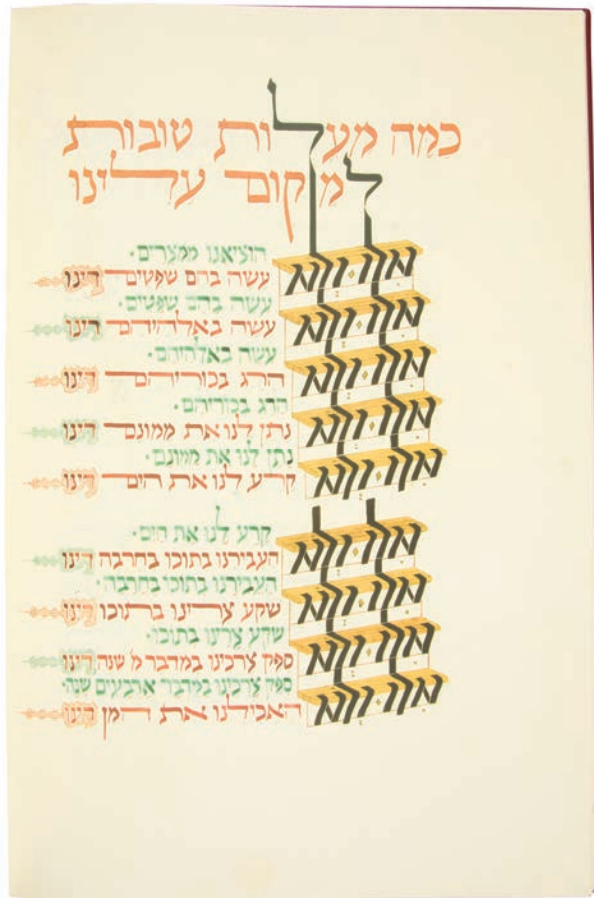 כמה מעלות טובות
למקום עלינו
אלו ולא
הוציאנו ממצרים·
עשה בהם שפטים דינו
אלו ולא
עשה בהם שפטים·
עשה באלהיהם דינו
אלו ולא
עשה באלהיהם·
הרג בכוריהם דינו
אלו ולא
הרג בכוריהם·
נתן לנו את ממונם דינו
אלו ולא
נתן לנו את ממונם·
קרע לנו את הים דינו
אלו ולא
קרע לנו את הים·
העבירנו בתוכו בחרבה דינו
אלו ולא
העבירנו בתוכו בחרבה·
שקע צרינו בתוכו דינו
אלו ולא
שקע צרינו בתוכו·
ספק צרכינו במדבר מ' שנה דינו
אלו ולא
ספק צרכינו במדבר ארבעים שנה·
האכילנו את המן דינו